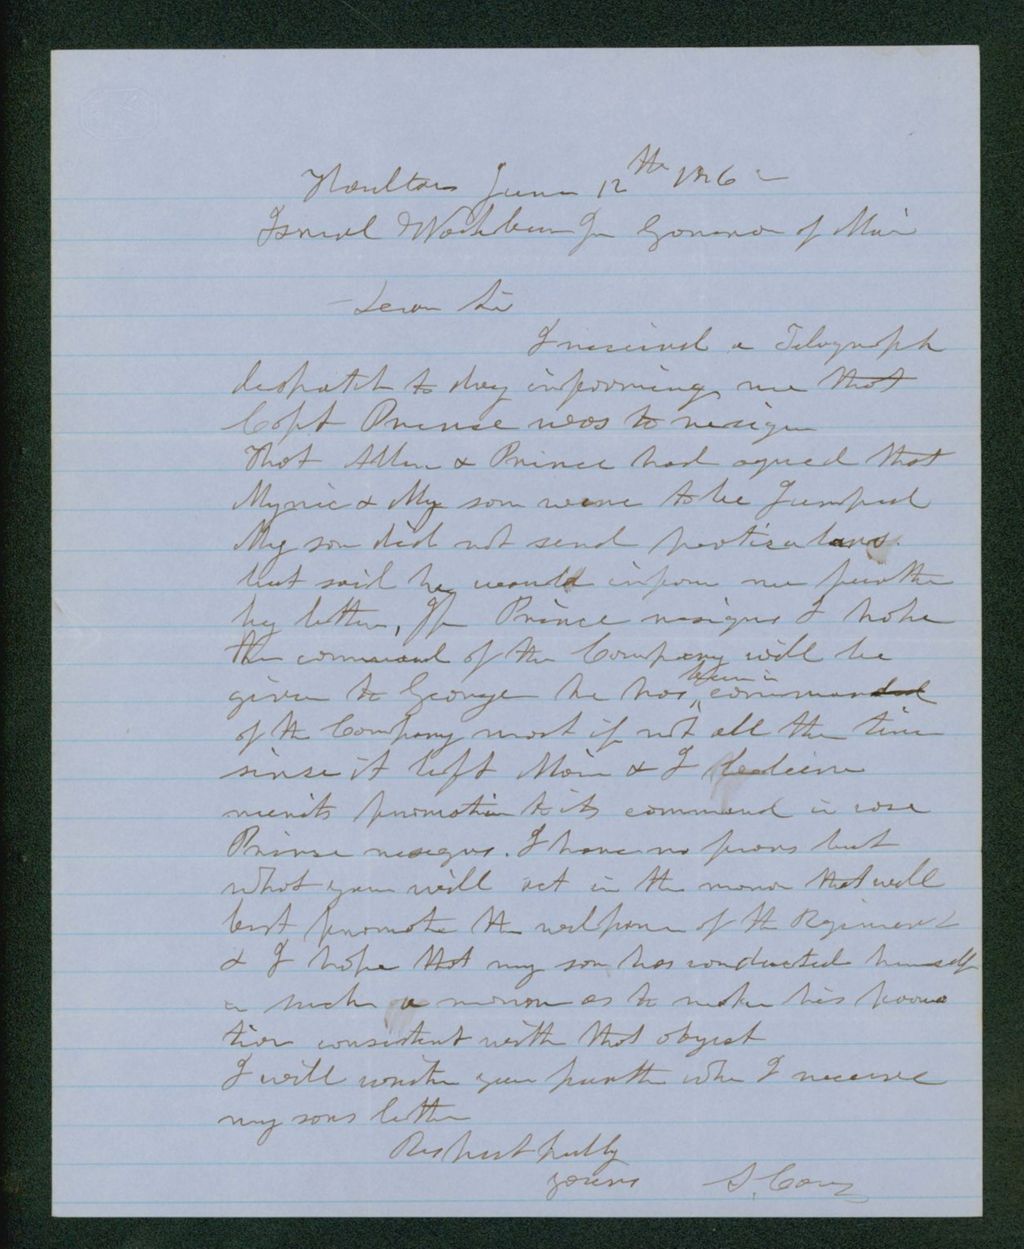 Houlton June 12th 1862
Israel Washburn Jr Governor of Main
Dear Sir
I received a Telegraph
despatch to day informing me that
Capt Prince was to resign
That Allen & Prince had agreed that
Myric & My son were to be Jumped
My son did not send particulars.
but said he would inform me further
by letter, If Prince resigns I hope
the command of the Company will be
given to George he has been in command
of the Company most if not all the time
since it left Main & I
merits promotion to its command in case
Prince resigns. I have no fears but
what you will act in the manor that will
best promote the welfare of the Regiment
& I hope that my son has conducted himself
in such a manor as to make his promo
tion consistent with that object
I will write you further when I receive
my sons letter
Respectfully
yours S. Cary